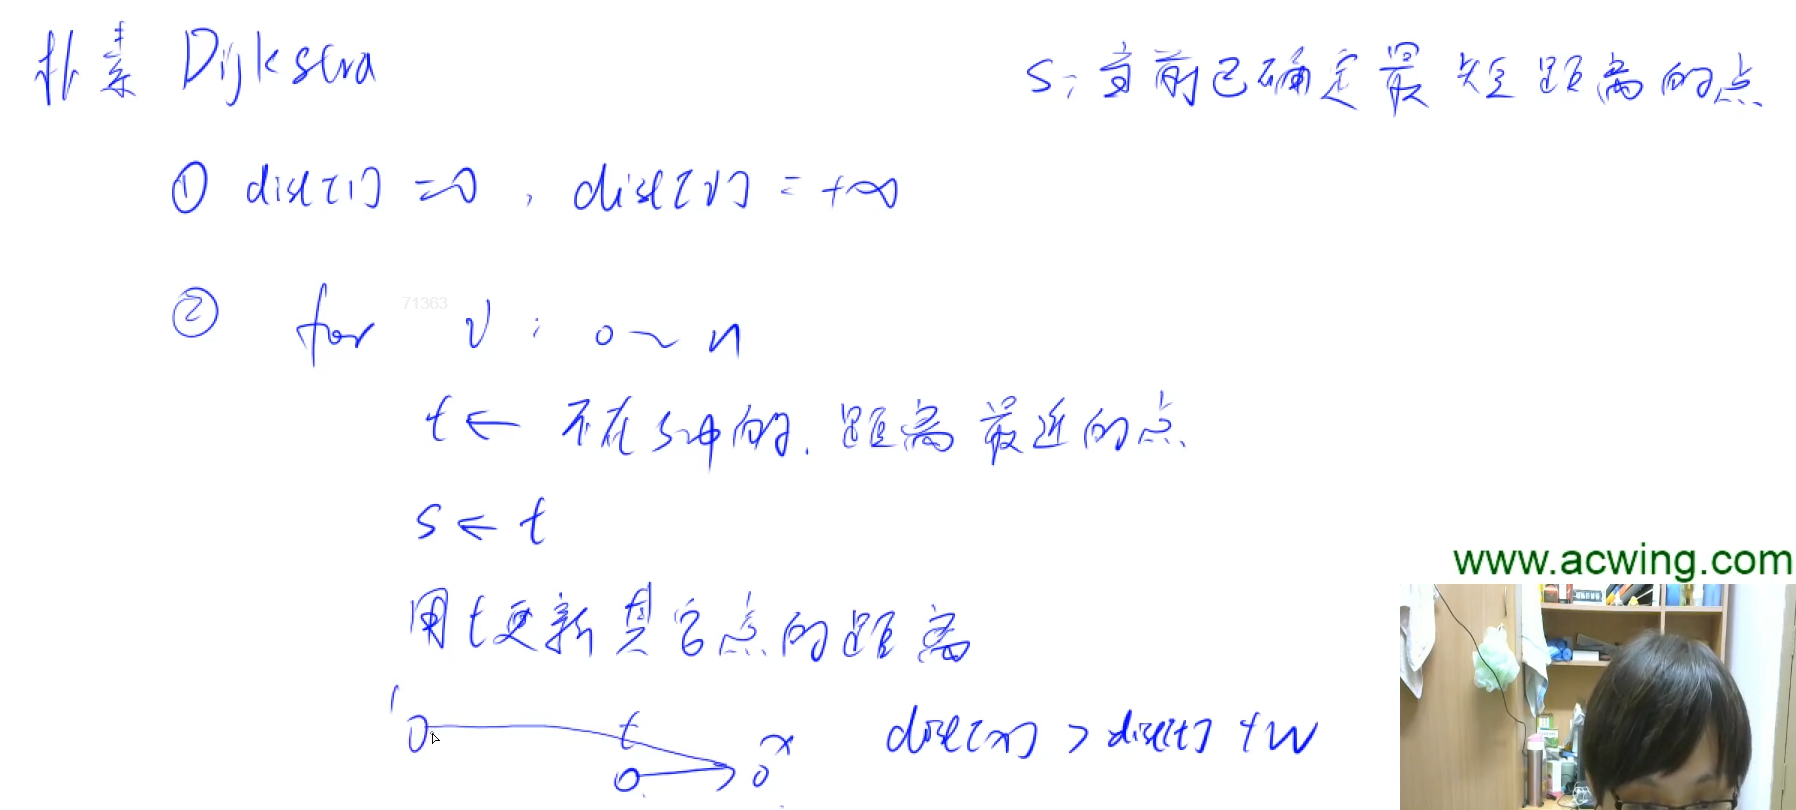 朴素 Dijkstra
s: 当前已确定最短距离的点
① dist[1] = 0, dist[v] = +∞
② for v: 0 ~ n
71363
t ← 不在s中的, 距离最近的点
s ← t
用t更新其它点的距离
1 t x dist[x] > dist[t] + w
www.acwing.com